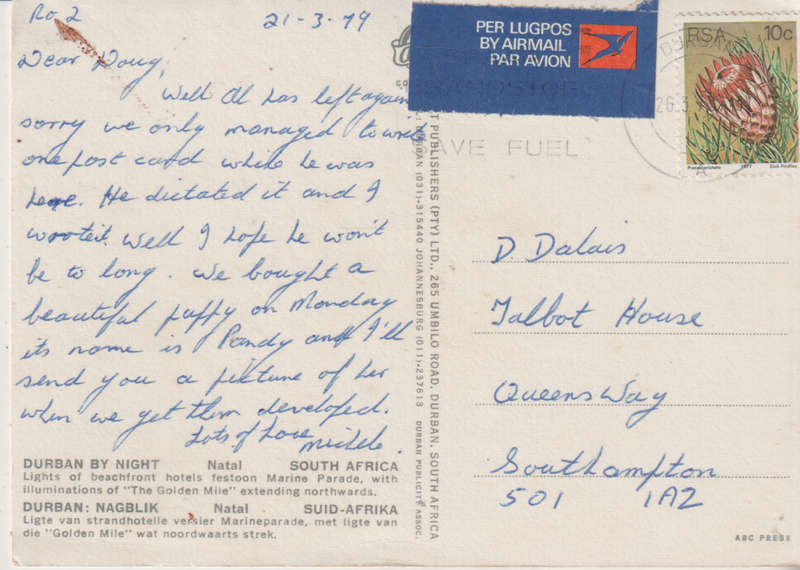 Ro 2
21-3-79
Dear Doug,
Well Al has left again
sorry we only managed to write
one post card while he was
here. He dictated it and I
wrote it. Well I hope he won't
be to long. We bought a
beautiful puppy on Monday
its name is Pandy and I'll
send you a picture of her
when we get them developed.
Lots of Love
Michele.
DURBAN BY NIGHT Natal SOUTH AFRICA
Lights of beachfront hotels festoon Marine Parade, with
illuminations of "The Golden Mile" extending northwards.
DURBAN: NAGBLIK Natal SUID-AFRIKA
Ligte van strandhotelle versier Marineparade, met ligte van
die "Golden Mile" wat noordwaarts strek.
PUBLISHERS (PTY) LTD., 265 UMBILO ROAD, DURBAN, SOUTH AFRICA
DURBAN (031)-315440 JOHANNESBURG (011)-237613 DURBAN PUBLICITY ASSOC.
PER LUGPOS
BY AIRMAIL
PAR AVION
AVE FUEL
DURBAN
26.3
RSA 10c
1977
D. Dalais
Talbot House
Queensway
Southampton
SO1 1AZ
ABC PRESS